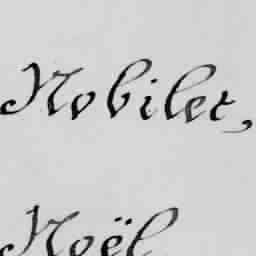 Nobilet,
Noël